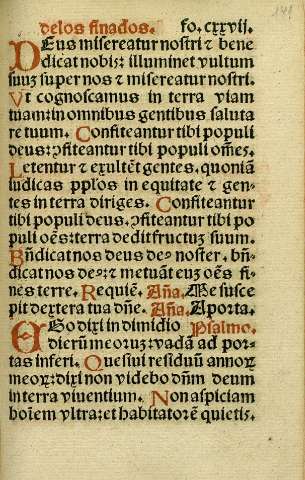 delos finados. fo. cxxvij. 141
Deus misereatur nostri ⁊ bene
dicat nobis: illuminet vultum
suuz super nos ⁊ misereatur nostri.
Ut cognoscamus in terra viam
tuam: in omnibus gentibus saluta
re tuum. Confiteantur tibi populi
deus: ↄfiteantur tibi populi oms̄.
Letentur ⁊ exultēt gentes. quoniā
iudicas pplos in equitate ⁊ gen-
tes in terra diriges. Confiteantur
tibi populi deus. ↄfiteantur tibi po
puli oēs: terra dedit fructuz suum.
Bn̄dicat nos deus de⁹ noster. bn̄-
dicat nos de⁹: ⁊ metuāt euz oēs fi-
nes terre. Requiē. Aña. Me susce
pit dextera tua dn̄e. Aña. A porta.
Ego dixi in dimidio Psalmo.
dierū meoruz: vadā ad por-
tas inferi. Quesiui residuū annoꝝ
meoꝝ: dixi non videbo dn̄m deum
in terra viuentium. Non aspiciam
hoīem vltra: et habitatorē quietis.